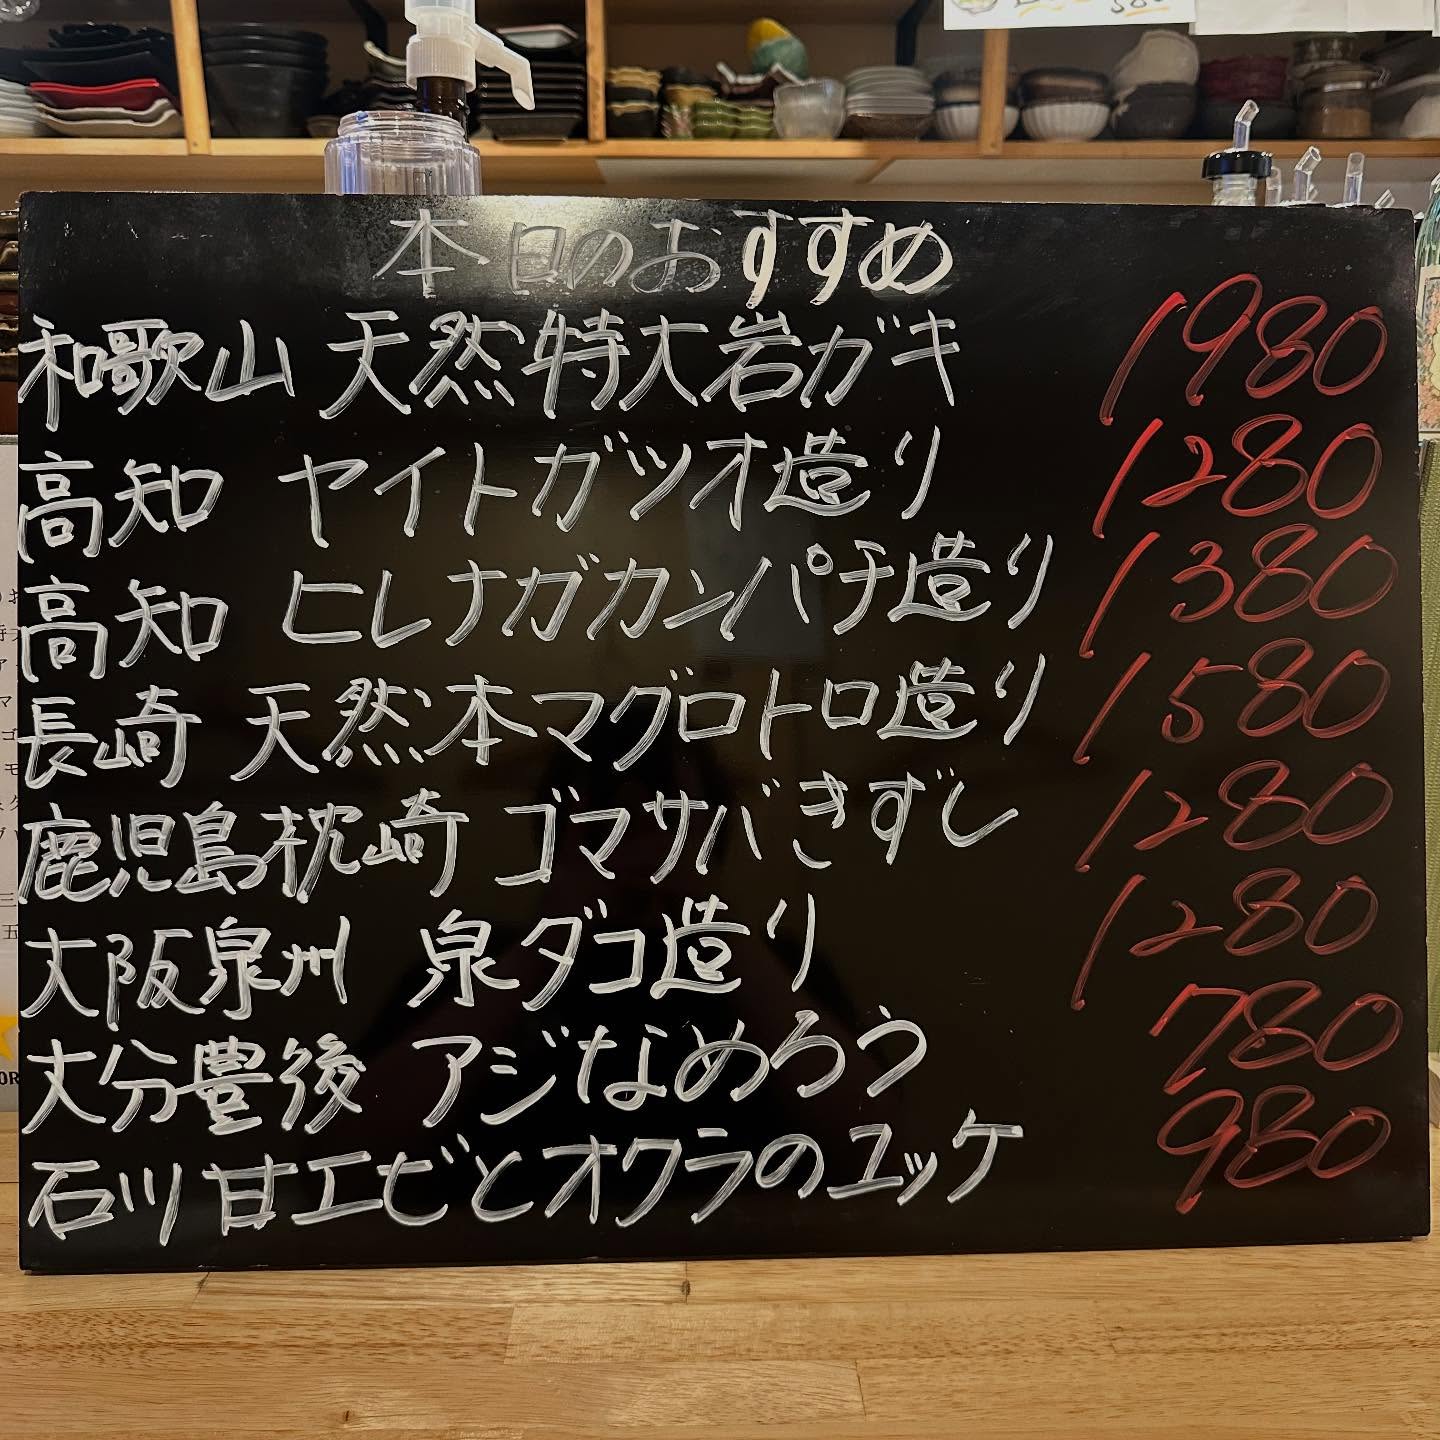 本日のおすすめ
和歌山 天然特大岩ガキ 1980
高知 ヤイトガツオ造り 1280
高知 ヒレナガカンパチ造り 1380
長崎 天然本マグロトロ造り 1580
鹿児島枕崎 ゴマサバきずし 1280
大阪泉州 泉ダコ造り 1280
大分豊後 アジなめろう 780
石川 甘エビとオクラのユッケ 980